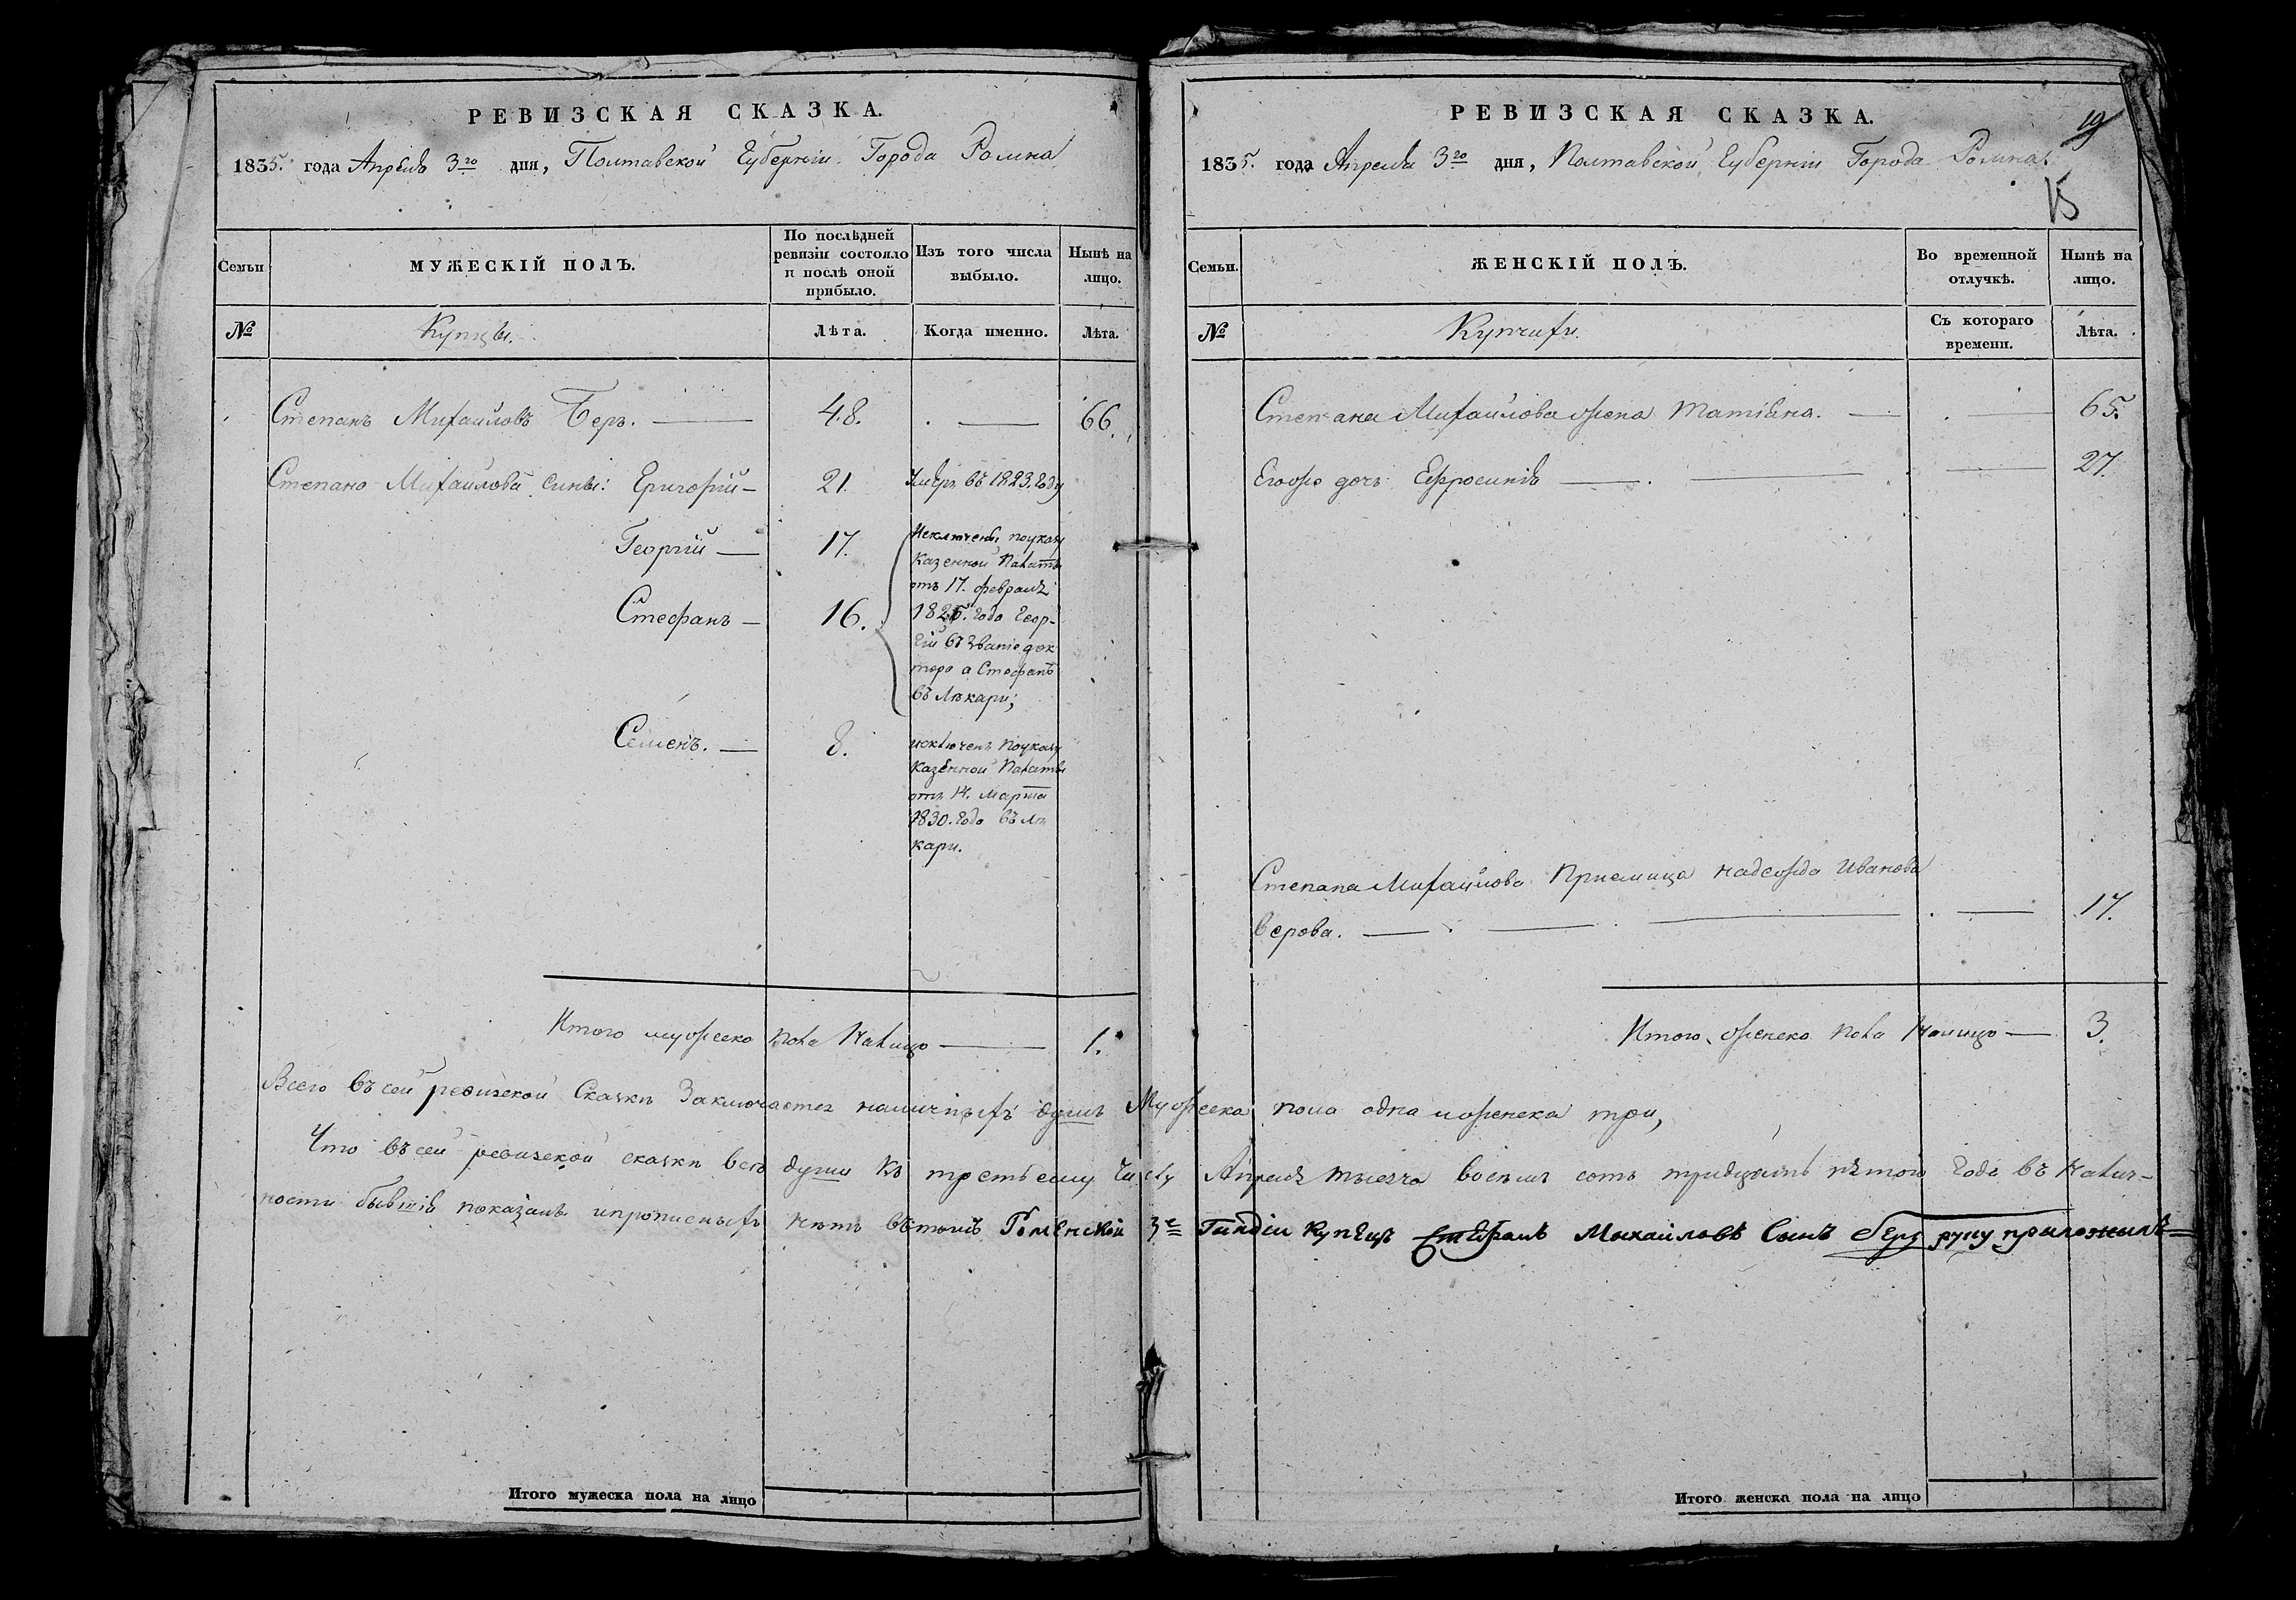 РЕВИЗСКАЯ СКАЗКА.
1835. года Апреля 3го дня, Полтавской Губернии Города Ромна
Семьи
МУЖЕСКІЙ ПОЛЪ.
По послѣдней ревизіи состояло и послѣ оной прибыло.
Изъ того числа выбыло.
Нынѣ на лицо.
№
Купцы.
Лѣта.
Когда именно.
Лѣта.
Степанъ Михайловъ Беръ. 48. 66.
Степана Михайлова сины: Григорій 21. Умеръ въ 1823. году
Георгій 17.
Стефанъ 16.
Исключены поуказу
Казенной Палаты
отъ 17. февраля
года Геор-
гій въ Званіе док
тора а Стефанъ
въ Лѣкари;
Семенъ. 8.
исключенъ поуказу
Казенной Палаты
отъ 14. Марта
1830. года въ Лѣ
кари.
Итого мужеска пола Налицо 1.
Итого мужеска пола на лицо
РЕВИЗСКАЯ СКАЗКА.
19
1835. года Апреля 3го дня, Полтавской Губерніи Города Ромна.
15
Семьи.
ЖЕНСКІЙ ПОЛЪ.
Во временной отлучкѣ.
Нынѣ на лицо.
№
Купчихи.
Съ котораго времени.
Лѣта.
Степана Михайлова жена Татіяна. 65.
Егожо дочь Ефросинія 27.
Степана Михайлова Приемища надежда Иванова
Берова. 17.
Итого женска пола Налицо 3.
Всего въ сей ревизской Сказки Заключается наличныхъ душъ Мужеска пола одна иженска три,
Что въ сей ревизской сказки всѣ души Къ третьему Числу Апреля тысяча восемь сотъ тридцать пятого Года въ Налич-
ности бывшія показаны ипрописныхъ нѣтъ вътомъ Роменскій 3й Гилдіи Купецъ Стефанъ Михайловъ Сынъ беръ руку приложилъ
Итого женска пола на лицо